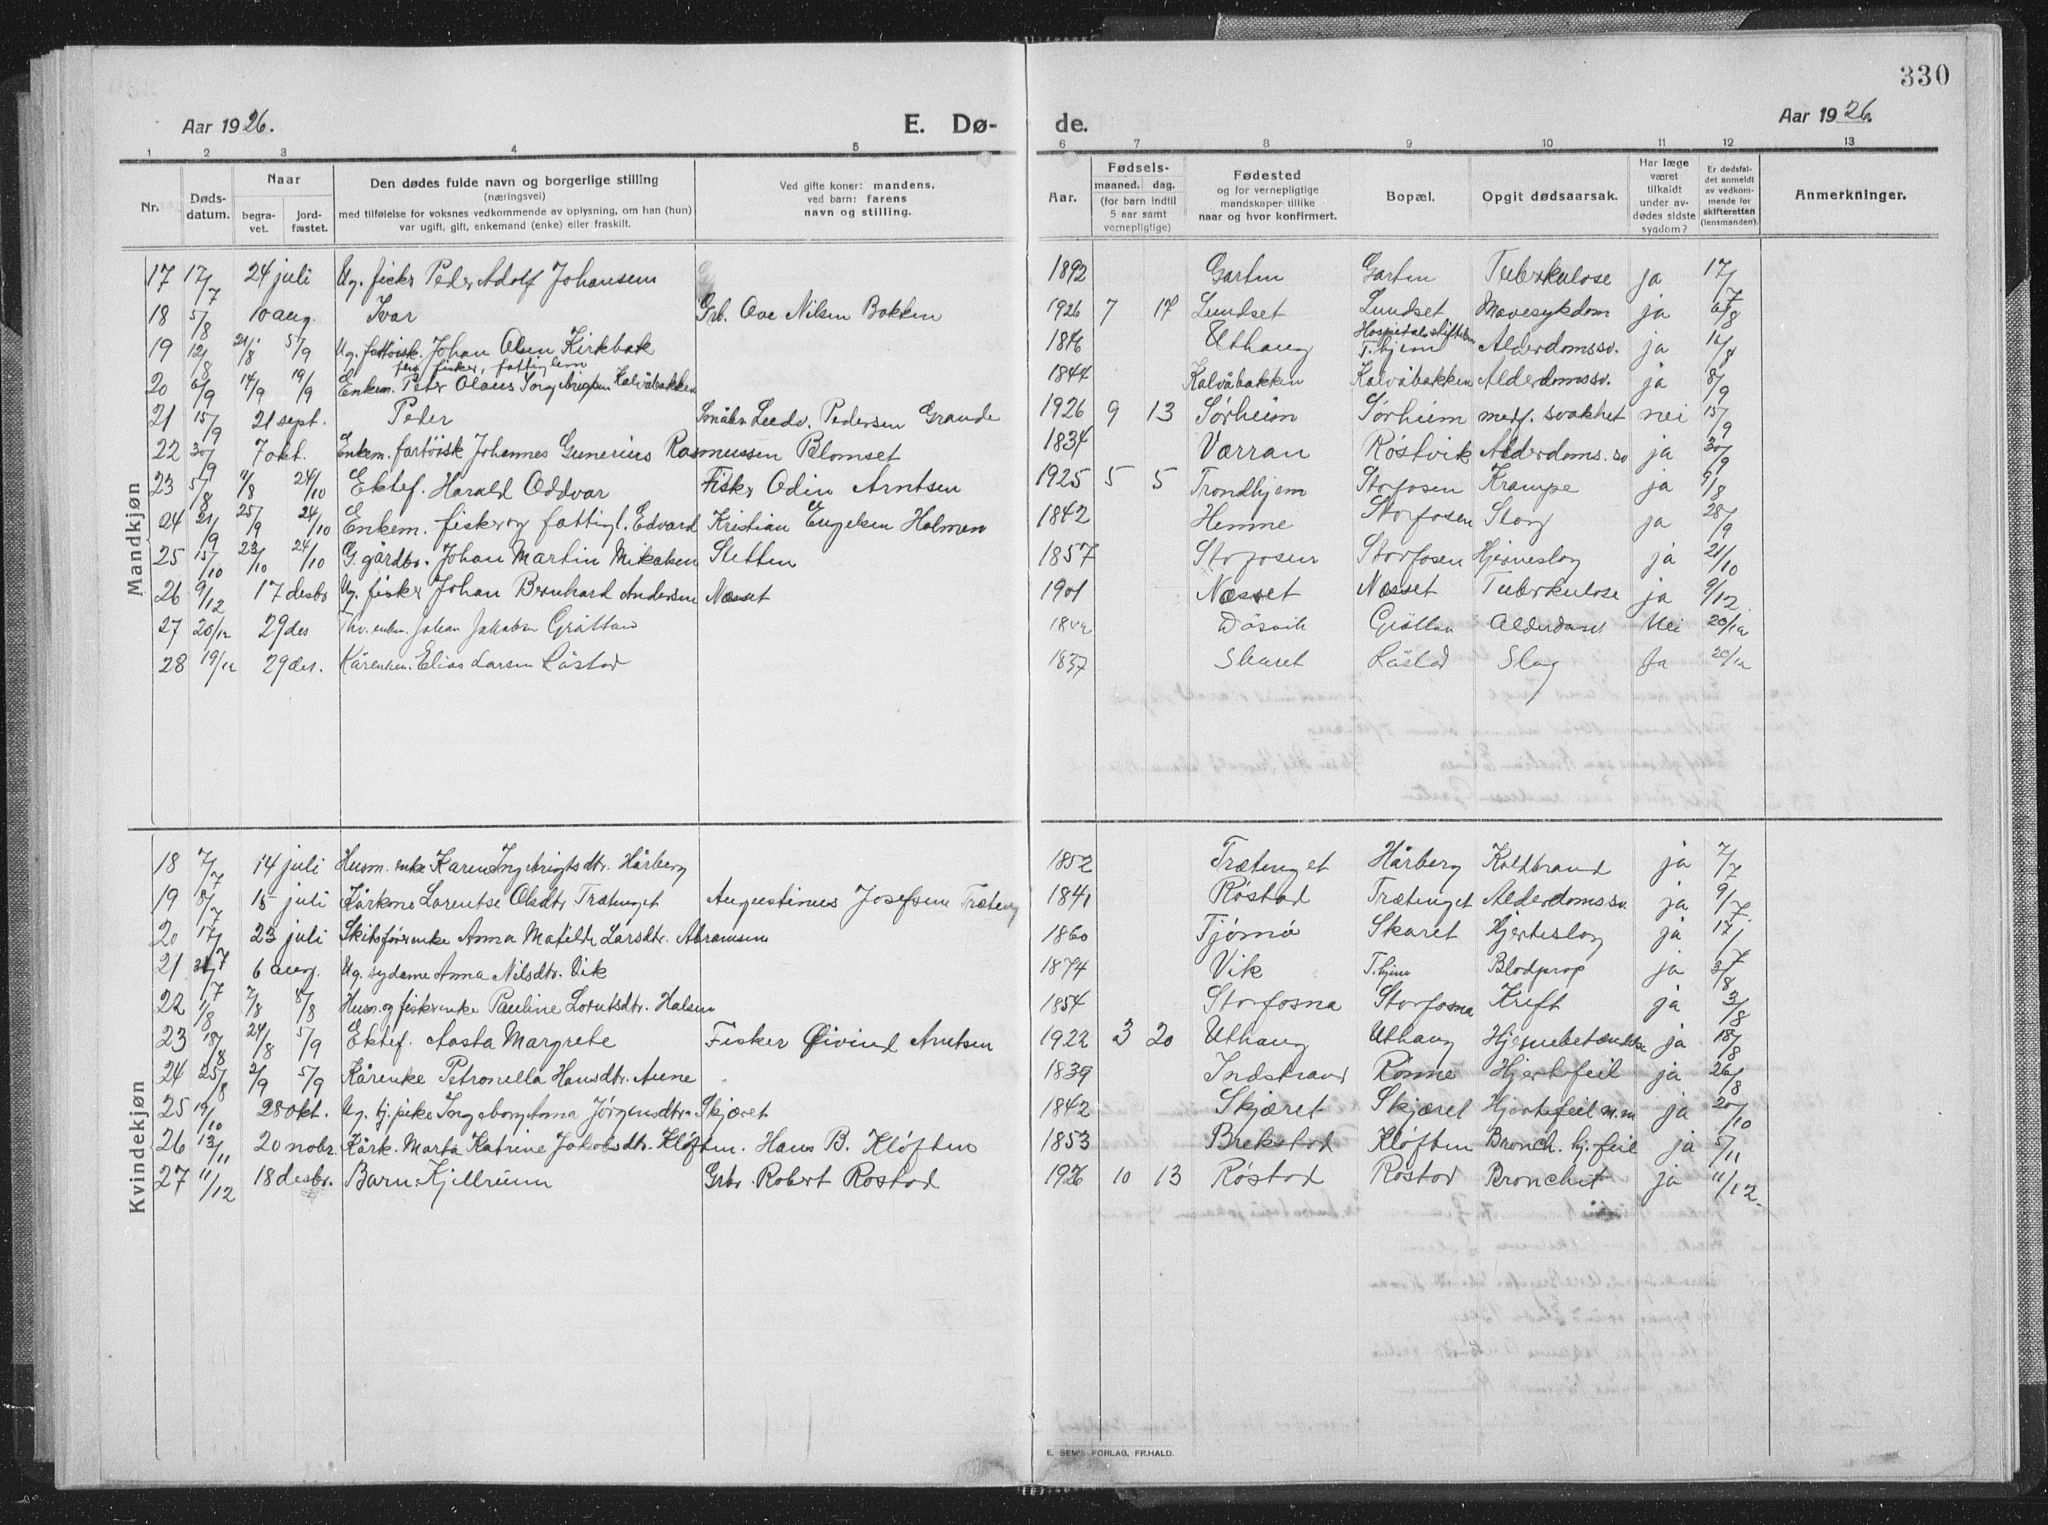 330
Aar 1926. E. Dø- de. Aar 1926.
1 2 3 4 5 6 7 8 9 10 11 12 13
Nr. Døds-datum. Naar begra-vet. jord-fæstet. Den dødes fulde navn og borgerlige stilling (næringsvei) med tilføielse for voksnes vedkommende av oplysning, om han (hun) var ugift, gift, enkemand (enke) eller fraskilt. Ved gifte koner: mandens. ved barn: farens navn og stilling. Aar. Fødsels- maaned. dag. (for barn indtil 5 aar samt vernepligtige) Fødested og for vernepligtige mandskaper tillike naar og hvor konfirmert. Bopæl. Opgit dødsaarsak. Har læge været tilkaldt under av-dødes sidste sygdom? Er dødsfal-det anmeldt av vedkom-mende for skifteretten (lensmanden). Anmerkninger.
Mandkjøn
17 17/7 24 juli Ug. fisker Peder Adolf Johansen 1892 Garten Garten Tuberkulose ja 17/7
18 5/8 10 aug. Ivar Grb. Ove Nilsen Bakken 1926 7 17 Lundset Lundset Mavesykdom ja 6/8
19 12/8 21/8 5/9 Ug. Johan Olsen Kirkbak Uthaug Hospitalsstiftelsen T.hjem Alderdomssv. ja
fhv. fisker, fattiglem
20 6/9 14/9 19/9 Enkem. Peter Olaus Ingebrigtsen Kalvåbakken 1844 Kalvåbakken Kalvåbakken Alderdomssv. ja 8/9
21 15/9 21 sept. Peder Småbr. Leedv. Pedersen Grande 1926 9 13 Sørheim Sørheim medf. svakhet nei 15/9
22 30/9 7 okt. Enkem. Johannes Gunerius Rasmussen Blomset 1834 Værran Røstvik Alderdoms.sv ja 30/9
23 5/8 11/8 24/10 Ektef. Harald Oddvar Fisker Odin Arntsen 1925 5 5 Trondhjem Storfosen Krampe ja 9/8
24 21/9 25/9 24/10 Enkem. fisker og fattigl. Edvard Kristian Engelsen Holmen 1842 Hemne Storfosen Slag ja 28/9
25 15/10 23/10 24/10 G. gårdbr. Johan Martin Mikalsen Sletten 1857 Storfosen Storfosen Hjerneslag ja 21/10
26 9/12 17 desbr Ug. fisker Johan Bernhard Andersen Næsset 1901 Næsset Næsset Tuberkulose ja 9/12
27 20/12 29 des Fhv. enkm. Johan Jakobsen Gråttan Døsvik Gråttan Nei 20/12
28 19/12 29 des. Kårenkem. Elias Larsen Råstad 1837 Skaret Råstad Slag Ja 20/12
Kvindekjøn
18 7/7 14 juli Husm. enke Karen Ingebrigtsdtr. Hårberg 1852 Trætenget Hårberg Koldbrand ja 7/7
19 8/7 15 juli Kårkone Lorentse Olsdtr Trætenget Augustinus Josefsen Træteng 1841 Røstad Trætenget Alderdomssv. ja 9/7
20 17/7 23 juli Skibsførerenke Anna Matilde Larsdtr. Abramsen 1860 Tjømø Skaret Hjerteslag ja 17/7
21 31/7 6 aug. Ug. sydame Anna Nilsdtr. Vik 1874 Vik T.hjem Blodprop ja 3/8
22 1/8 7/8 8/8 Husm. og fiskerenke Pauline Lorntsdtr. Halsen 1854 Storfosna Storfosna Kræft ja 3/8
23 18/8 24/8 5/9 Ektef. Aasta Margrete Fisker Øivind Arntsen 1922 3 20 Uthaug Uthaug Hjernebetændelse ja 18/8
24 25/8 2/9 5/9 Kårenke Petronella Hansdtr. Aune 1839 Indstrand Rønne Hjertefeil ja 26/8
25 19/10 28 okt. Ug. tj.pike Ingeborg Anna Jørgensdtr. Skjæret 1842 Skjæret Skjæret Hjertefeil m.m ja 20/10
26 13/11 20 nobr. Kårk. Marta Katrine Jakobsdtr. Kløften. Hans B. Kløften 1853 Brekstad Kløften Bronch. hj.feil ja 5/11
27 11/12 18 desbr. Barn Kjellrunn Grbr. Robert Røstad 1926 10 13 Røstad Røstad Bronchit ja 11/12
E. SEM'S FORLAG, FR.HALD.